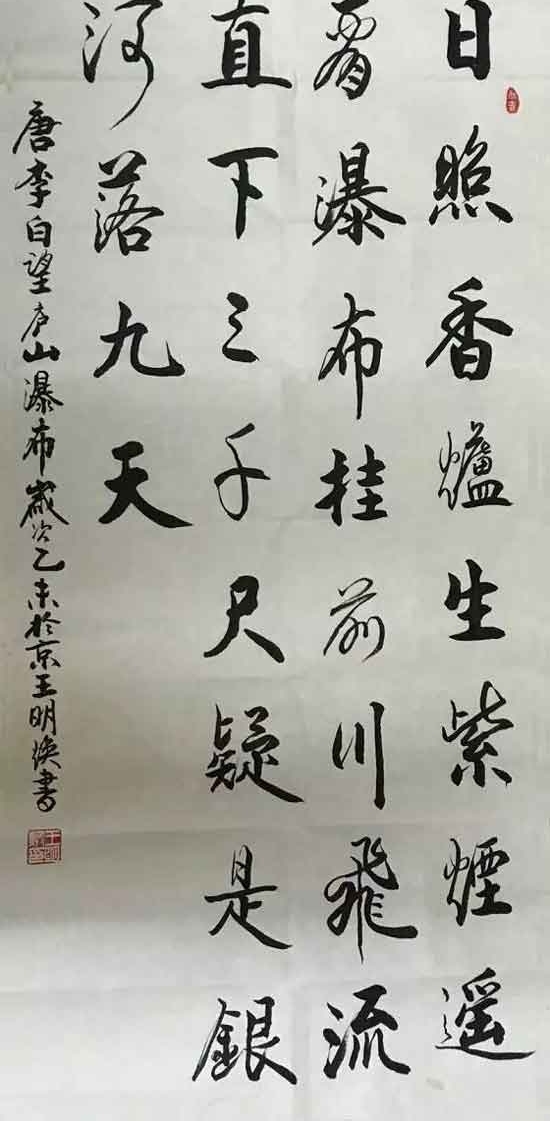 日照香爐生紫煙遥
看瀑布挂前川飛流
直下三千尺疑是銀
河落九天
唐李白望庐山瀑布歲次乙未於京王明焕書